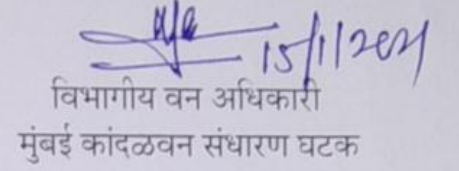 15/1/2021
विभागीय वन अधिकारी
मुंबई कांदळवन संधारण घटक